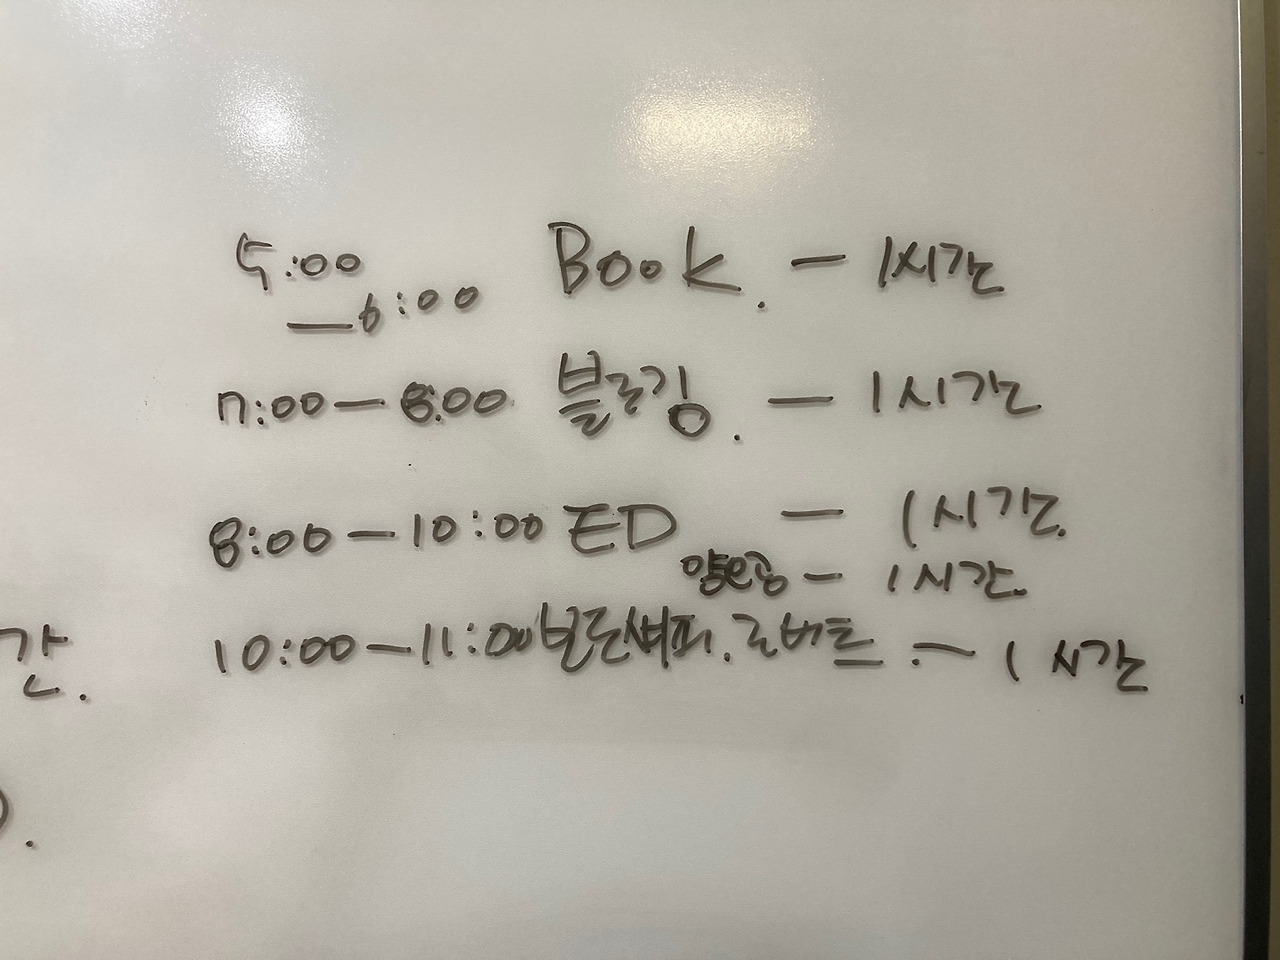 5:00
—6:00 Book. — 1시간
7:00 — 8:00 블로깅. — 1시간
8:00 — 10:00 ED — 1시간.
— 1시간.
간. 10:00 — 11:00 로버트 — 1시간